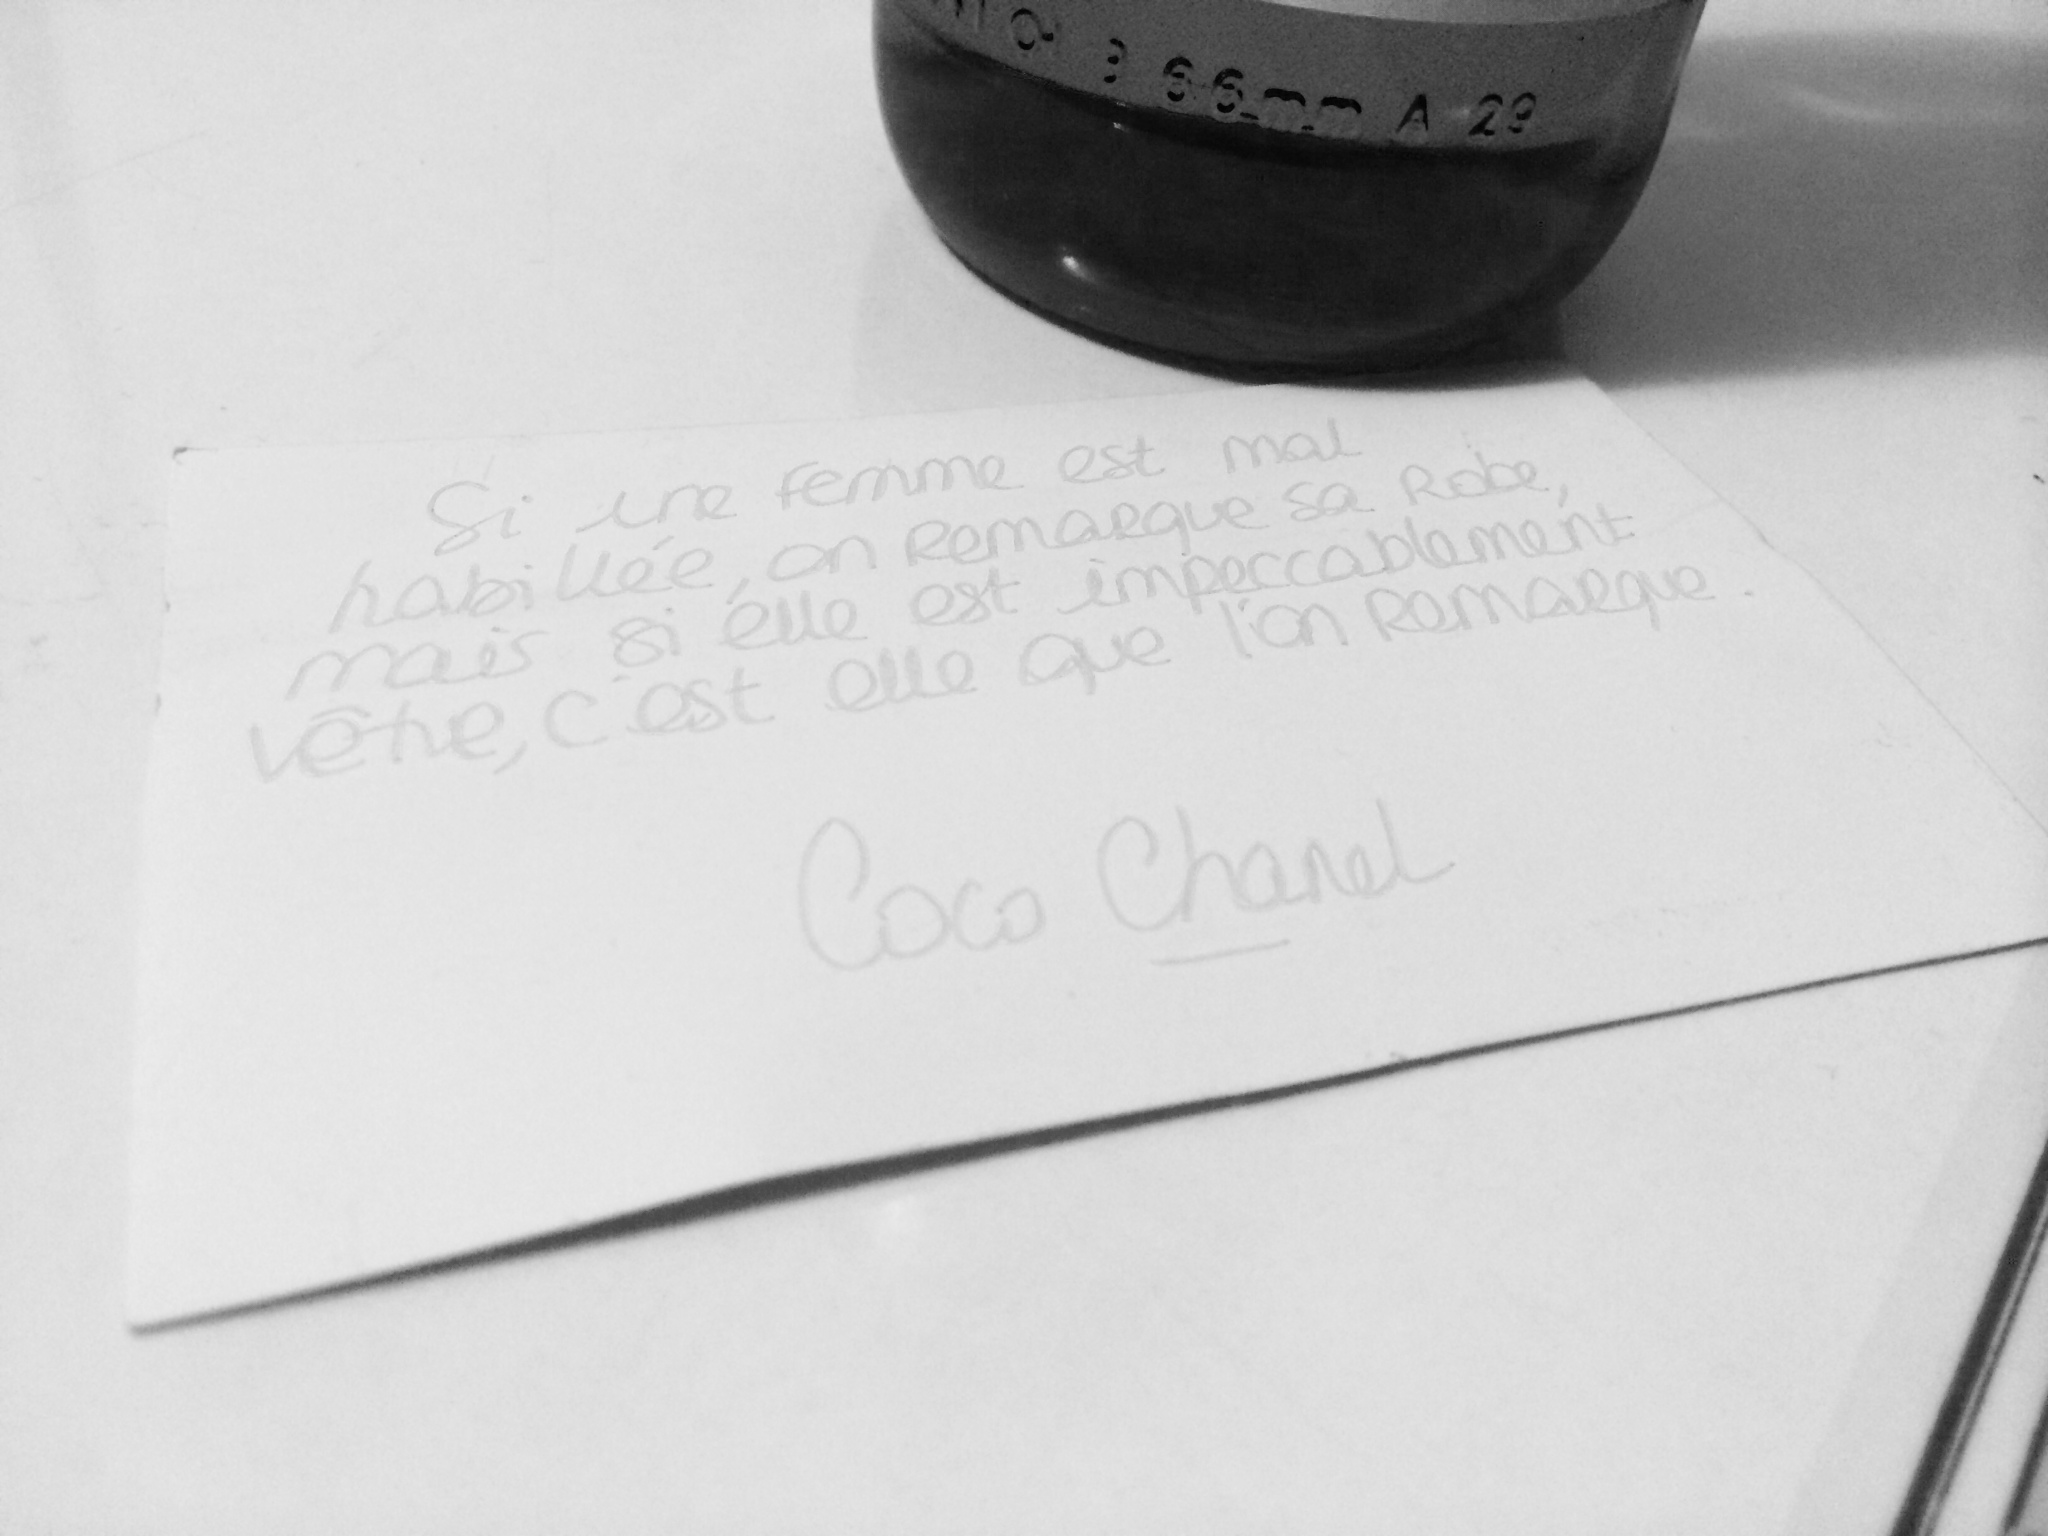 66mm A 29
Si une femme est mal
habillée, on remarque sa robe,
mais si elle est impeccablement
vêtue, c'est elle que l'on remarque.
Coco Chanel